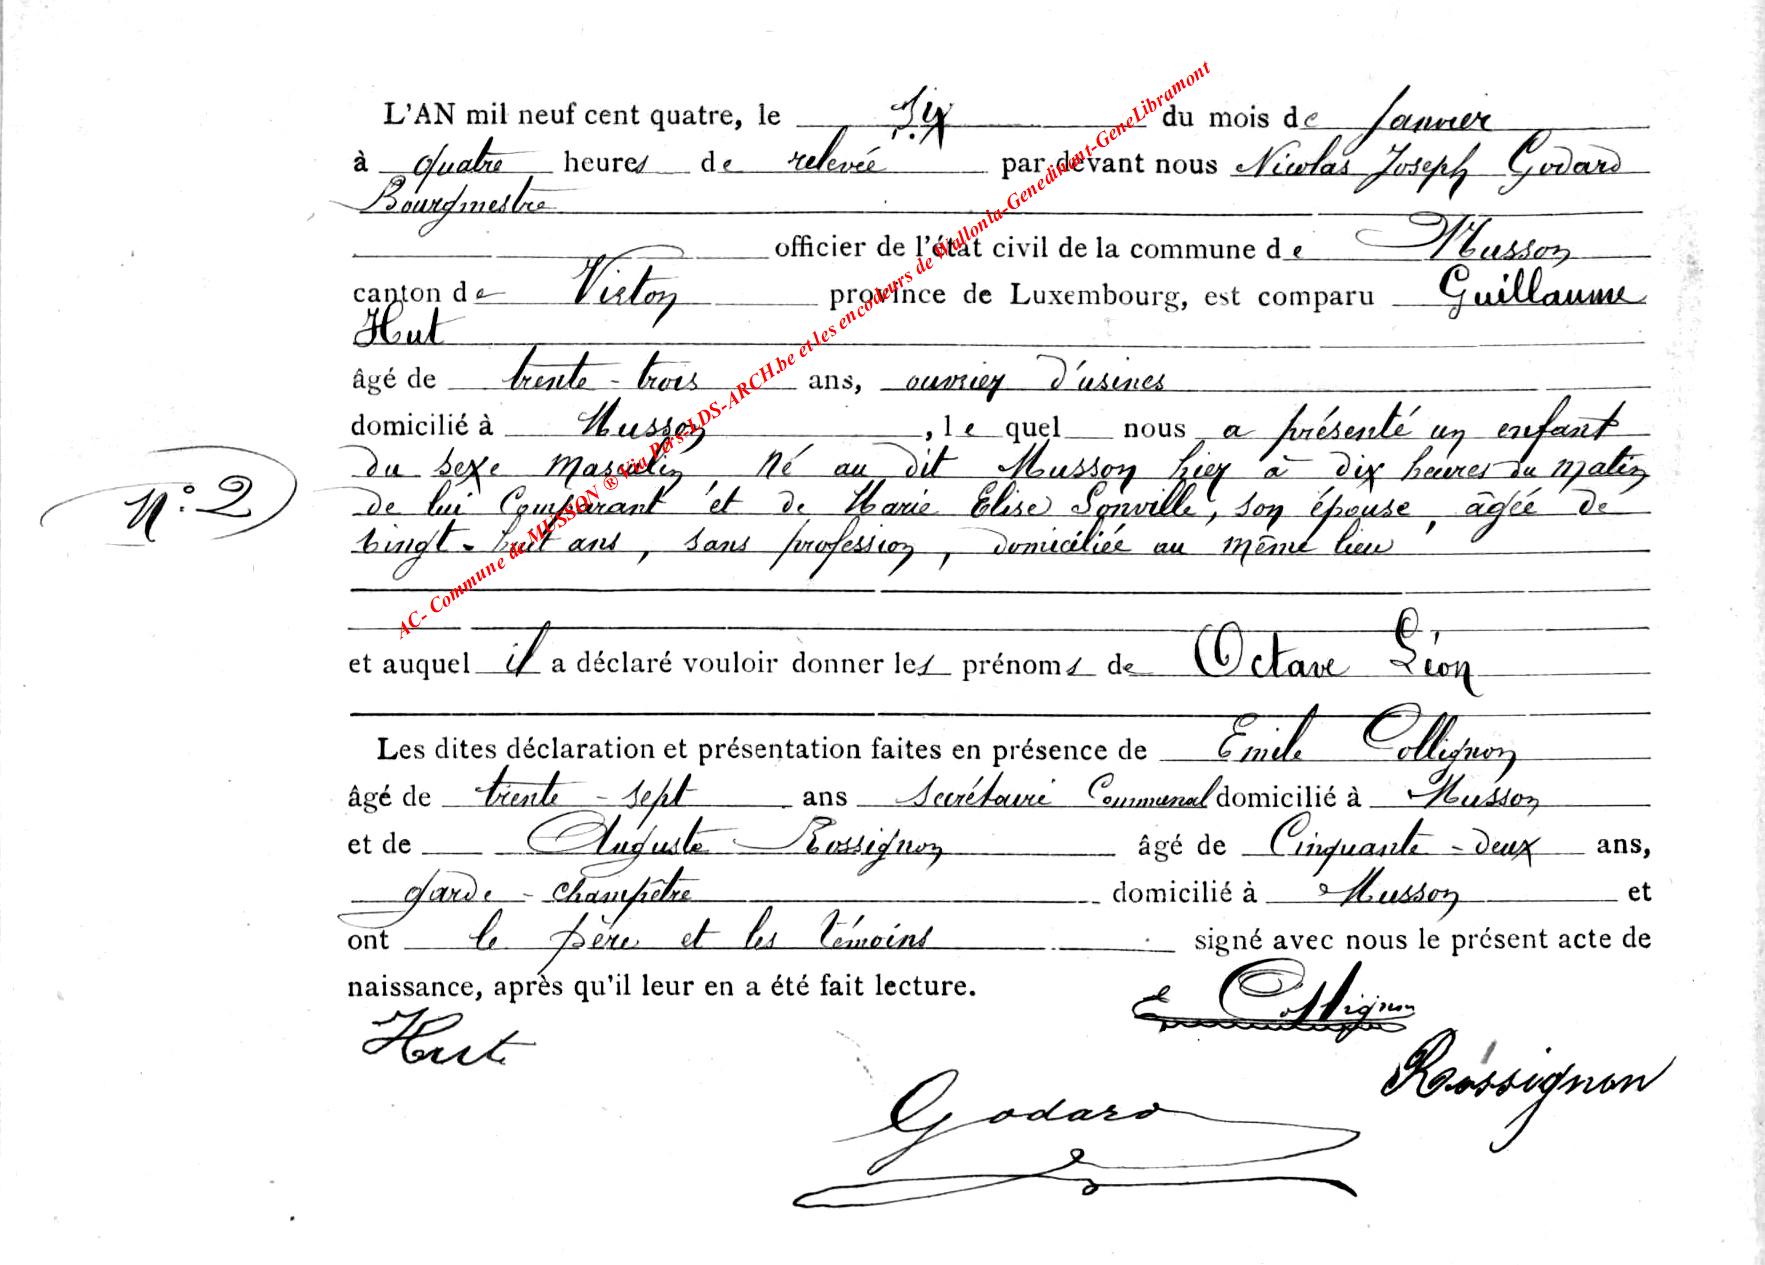 L'AN mil neuf cent quatre, le six du mois de Janvier
à quatre heures de relevée par devant nous Nicolas Joseph Godard
Bourgmestre
officier de l'état civil de la commune de Musson
canton de Virton province de Luxembourg, est comparu Guillaume
Hut
âgé de trente-trois ans, ouvrier d'usines
domicilié à Musson, le quel nous a présenté un enfant
du sexe masculin né au dit Musson hier à dix heures du matin
N° 2
de lui Comparant et de Marie Elise Sonville, son épouse, âgée de
vingt-huit ans, sans profession, domiciliée au même lieu
et auquel il a déclaré vouloir donner les prénoms de Octave Léon
Les dites déclaration et présentation faites en présence de Emile Collignon
âgé de trente-sept ans secrétaire Communal domicilié à Musson
et de Auguste Rossignon âgé de Cinquante-deux ans,
garde-champêtre domicilié à Musson et
ont le père et les témoins signé avec nous le présent acte de
naissance, après qu'il leur en a été fait lecture.
E Collignon
Hut
Rossignon
Godard
AC- Commune de MUSSON ® Via Pers-LDS-ARCH.be et les encodeurs de Wallonia-Genedinant-GeneLibramont